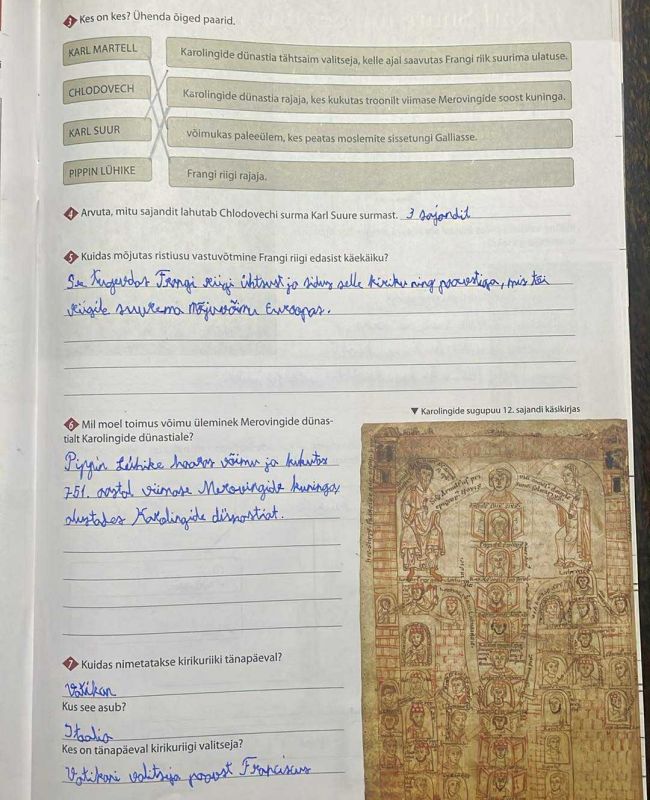 3 Kes on kes? Ühenda õiged paarid.
KARL MARTELL
Karolingide dünastia tähtsaim valitseja, kelle ajal saavutas Frangi riik suurima ulatuse.
CHLODOVECH
Karolingide dünastia rajaja, kes kukutas troonilt viimase Merovingide soost kuninga.
KARL SUUR
võimukas paleeülem, kes peatas moslemite sissetungi Galliasse.
PIPPIN LÜHIKE
Frangi riigi rajaja.
4 Arvuta, mitu sajandit lahutab Chlodovechi surma Karl Suure surmast. 3 sajandit
5 Kuidas mõjutas ristiusu vastuvõtmine Frangi riigi edasist käekäiku?
See tugevdas Frangi riigi ühtsust ja sidus selle kiriku ning paavstiga, mis tõi
riigile suurema mõjuvõimu Euroopas.
6 Mil moel toimus võimu üleminek Merovingide dünas-
tialt Karolingide dünastiale?
▼ Karolingide sugupuu 12. sajandi käsikirjas
Pippin Lühike haaras võimu ja kukutas
751. aastal viimase Merovingide kuninga
alustades Karolingide dünastiat.
7 Kuidas nimetatakse kirikuriiki tänapäeval?
Vatikan
Kus see asub?
Itaalia
Kes on tänapäeval kirikuriigi valitseja?
Vatikani valitseja paavst Franciscus